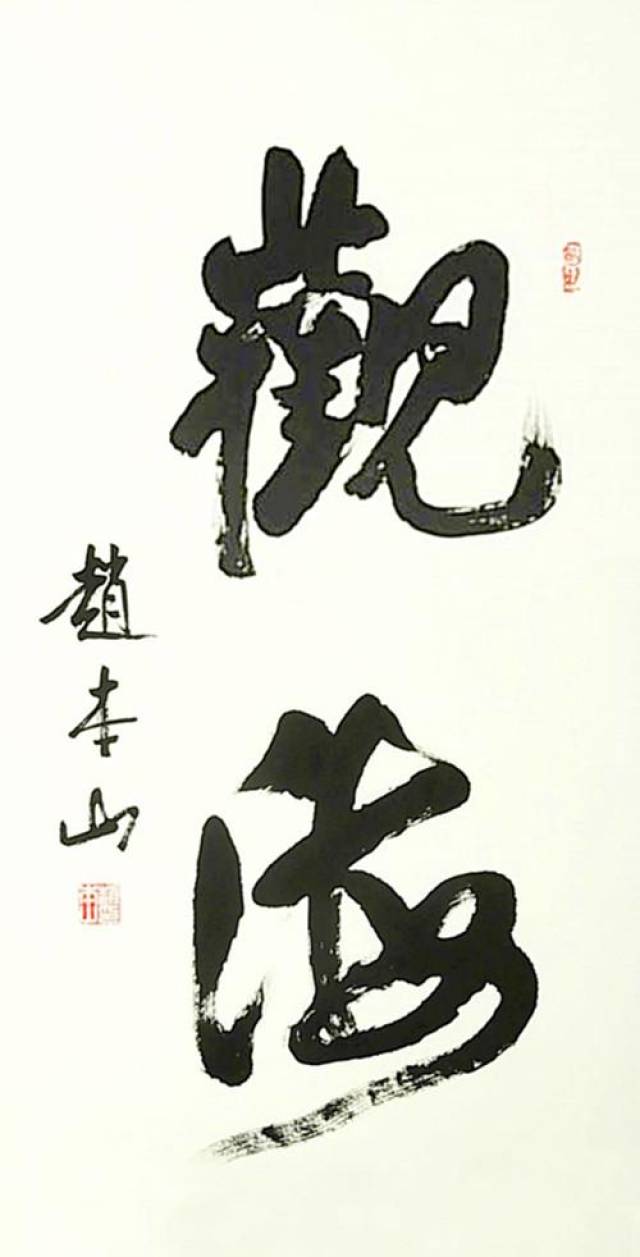 觀海
趙本山